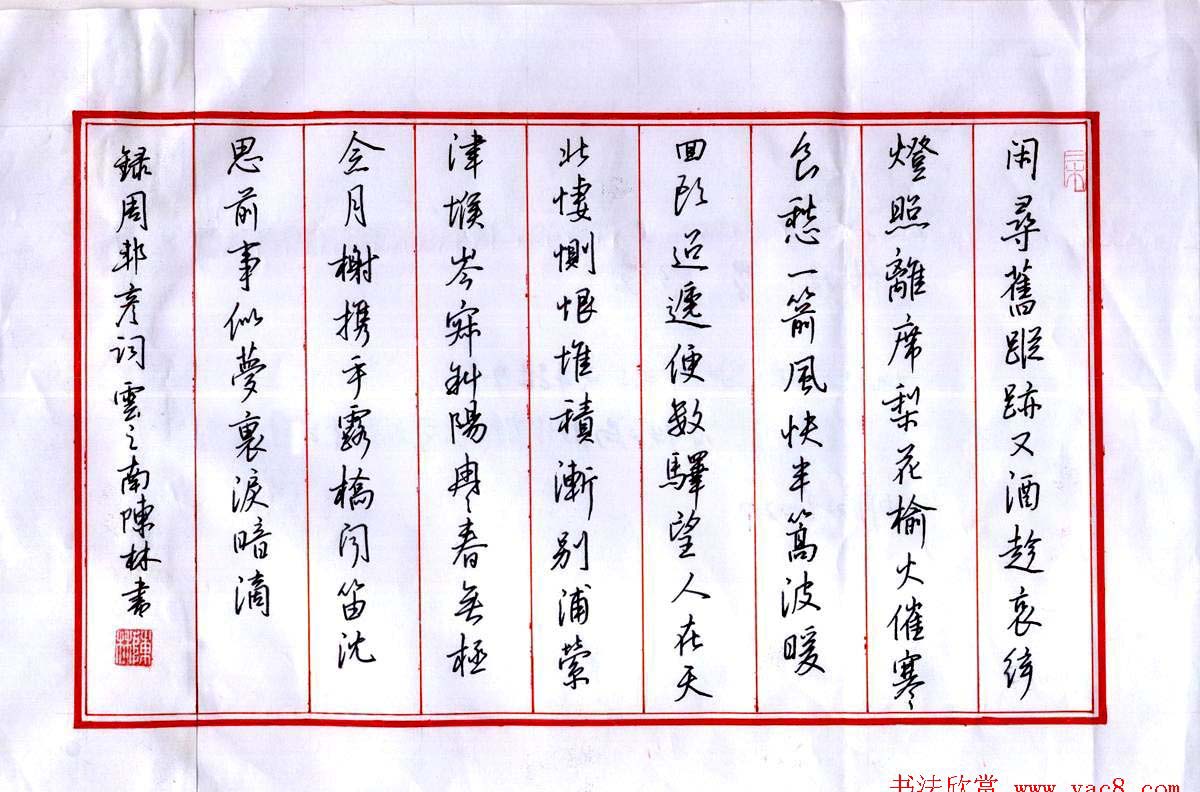 闲尋舊蹤跡又酒趁哀絃
燈照離席梨花榆火催寒
食愁一箭風快半篙波暖
回頭迢遞便數驛望人在天
北悽惻恨堆積漸别浦縈
津堠岑寂斜陽冉冉春無極
念月榭携手露橋闻笛沈
思前事似夢裏淚暗滴
録周邦彦词雲之南陳林書
陳林
书法欣赏 www.yac8.com